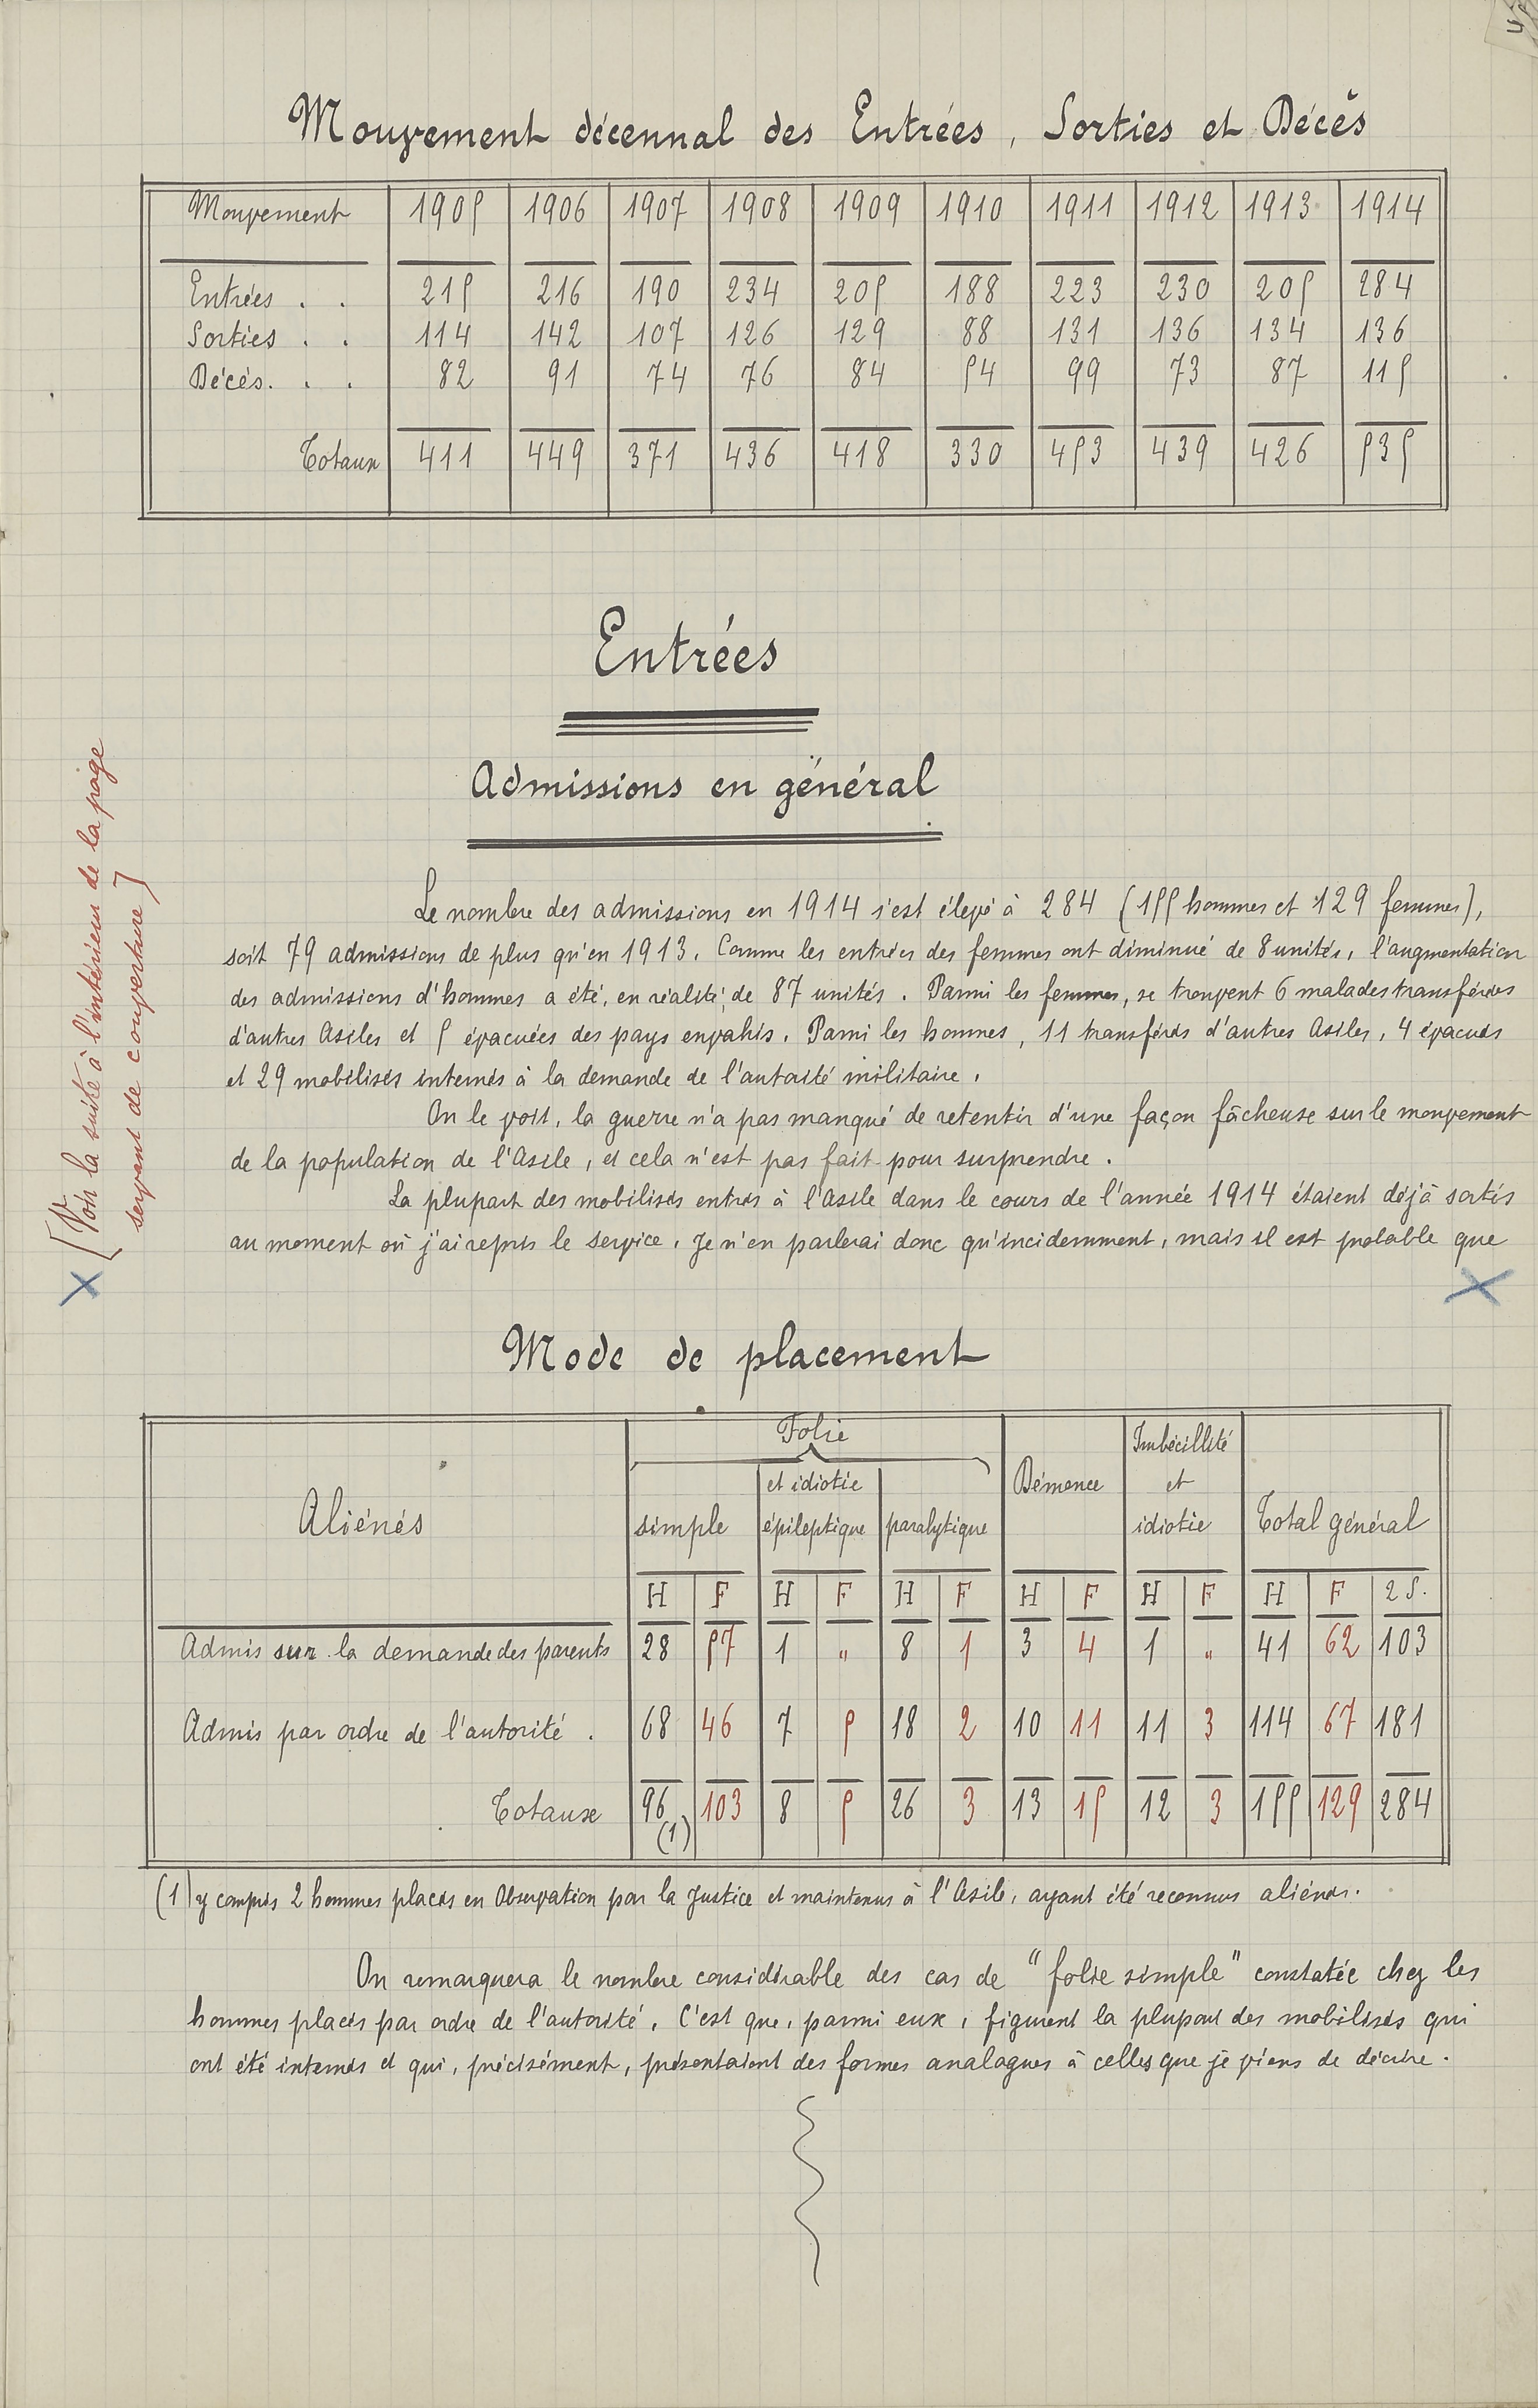 Mouvement décennal des Entrées, Sorties et Décès
Mouvement 1905 1906 1907 1908 1909 1910 1911 1912 1913 1914
Entrées . . 215 216 190 234 205 188 223 230 205 284
Sorties . . 114 142 107 126 129 88 131 136 134 136
Décès. . . 82 91 74 76 84 54 99 73 87 115
Totaux 411 449 371 436 418 330 453 439 426 535
Entrées
Admissions en général
Le nombre des admissions en 1914 s'est élevé à 284 (155 hommes et 129 femmes),
soit 79 admissions de plus qu'en 1913. Comme les entrées des femmes ont diminué de 8 unités, l'augmentation
des admissions d'hommes a été, en réalité, de 87 unités. Parmi les femmes, se trouvent 6 malades transférées
d'autres Asiles et 5 évacuées des pays envahis. Parmi les hommes, 11 transférés d'autres Asiles, 4 évacués
et 29 mobilisés internés à la demande de l'autorité militaire.
On le voit, la guerre n'a pas manqué de retentir d'une façon fâcheuse sur le mouvement
de la population de l'Asile, et cela n'est pas fait pour surprendre.
La plupart des mobilisés entrés à l'Asile dans le cours de l'année 1914 étaient déjà sortis
au moment où j'ai repris le service. Je n'en parlerai donc qu'incidemment, mais il est probable que
[Voir la suite à l'intérieur de la page
servant de couverture]
X X
Mode de placement
Folie
Imbécillité
et idiotie Démence et
Aliénés simple épileptique paralytique idiotie Total général
H F H F H F H F H F H F 2 S.
Admis sur la demande des parents 28 57 1 " 8 1 3 4 1 " 41 62 103
Admis par ordre de l'autorité . 68 46 7 5 18 2 10 11 11 3 114 67 181
Totaux 96 (1) 103 8 5 26 3 13 15 12 3 155 129 284
(1) y compris 2 hommes placés en Observation par la Justice et maintenus à l'Asile, ayant été reconnus aliénés.
On remarquera le nombre considérable des cas de "folie simple" constatée chez les
hommes placés par ordre de l'autorité. C'est que, parmi eux, figurent la plupart des mobilisés qui
ont été internés et qui, précisément, présentaient des formes analogues à celles que je viens de décrire.